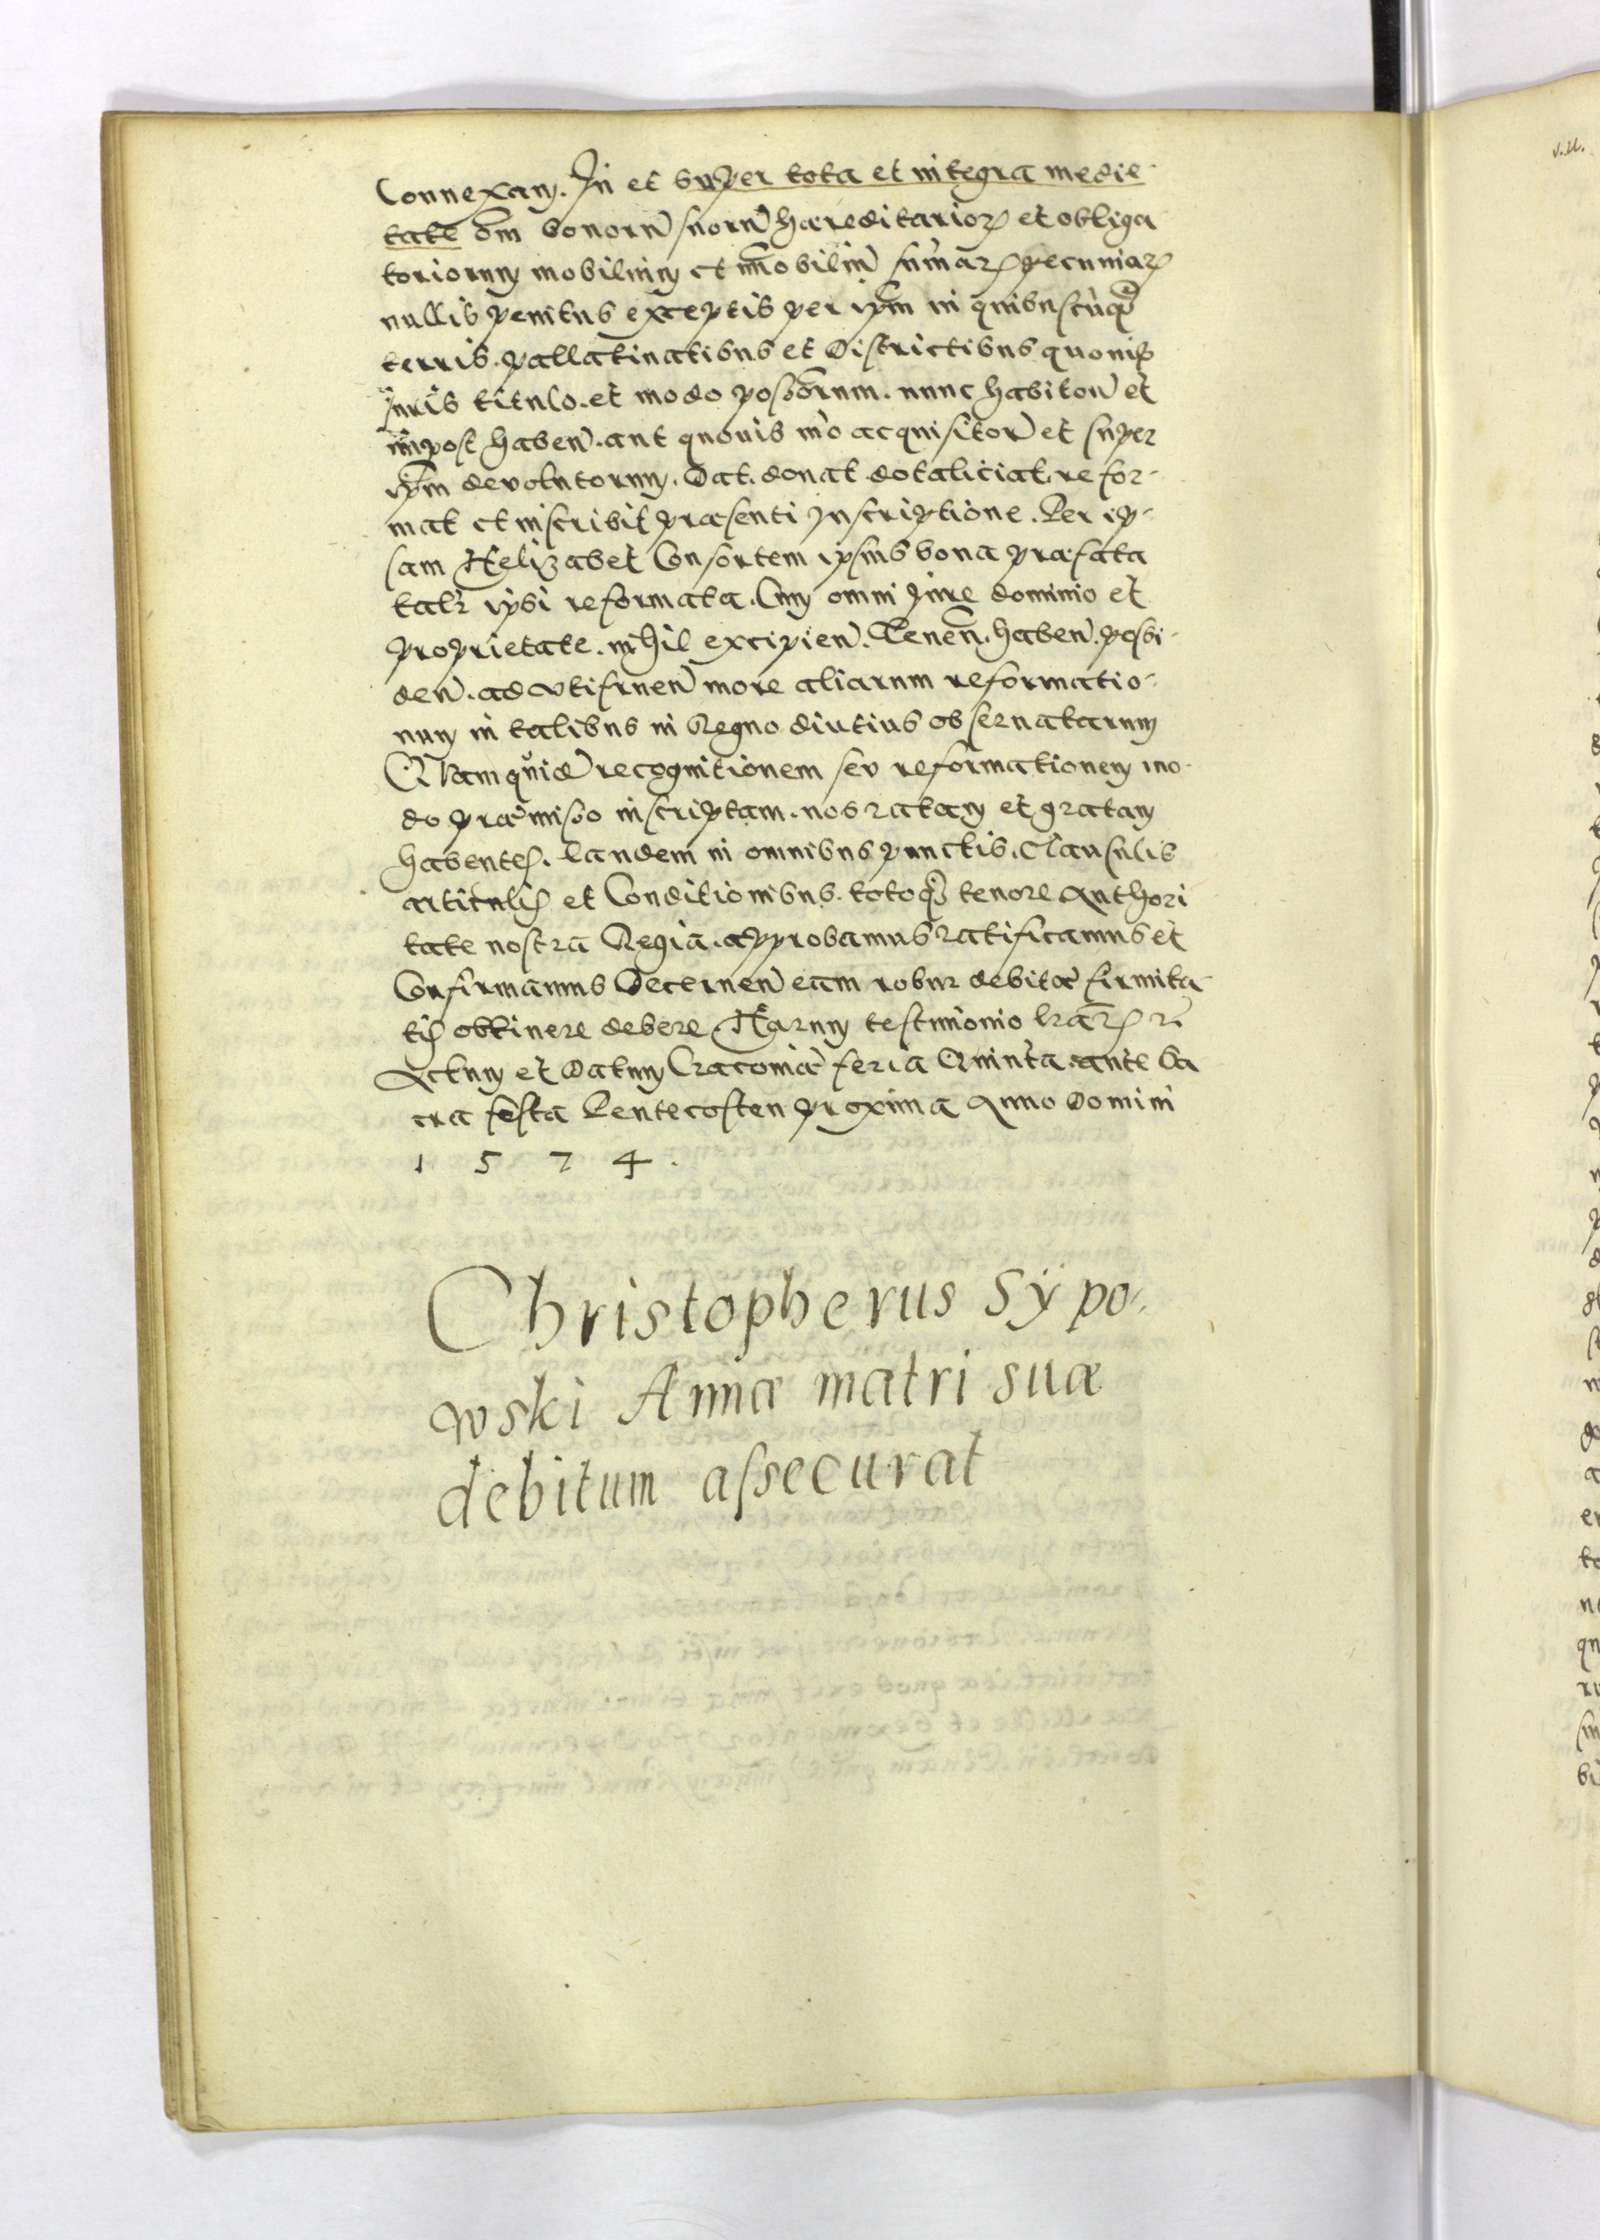 Connexam. In et super tota et integra medie-
tate om̄ bonorū suorū haereditarioꝝ et obliga
toriorum mobilium et īmobiliū sum̄aꝝ pecuniaꝝ
nullis penitus exceptis per ip̄m in quibuscūq́ꝫ
terris. pallatinatibus et Districtibus quouis
Iuris titulo. et modo possessorum. nunc habitorū et
inpost haben̄. aut quouis mō acquisitorū et super
ip̄m devolutorum. Dat. donat dotaliciat. refor-
mat et inscribit praesenti Inscriptione. Per ip-
sam Helizabet Consortem ipsius bona praefata
talr̄ ipsi reformata. Cum omni Iure dominio et
proprietate. nihil excipien̄. Tenen̄. haben̄. possi-
den̄. ad vtifruen̄ more aliarum reformatio-
num in talibus in Regno diutius obseruatarum
QVam quid recognitionem seu reformationem mo-
do praemisso inscriptam. nos ratam et gratam
habentes. Eandem in omnibus punctis. Clausulis
articulis et Conditionibus. totoq́ꝫ tenore Authori
tate nostra Regia. approbamus ratificamus et
Confirmamus Decernen̄ eam robur debitae firmita-
tis obtinere debere. Harum testimonio lrāꝝ rc̄
Actum et Datum Cracouiae feria Quinta. ante Sa
cra festa Pentecosten proxima Anno Domini
1 5 7 4 .
Christopherus Sÿpo-
wski Annæ matri suæ
debitum assecurat
v.M.